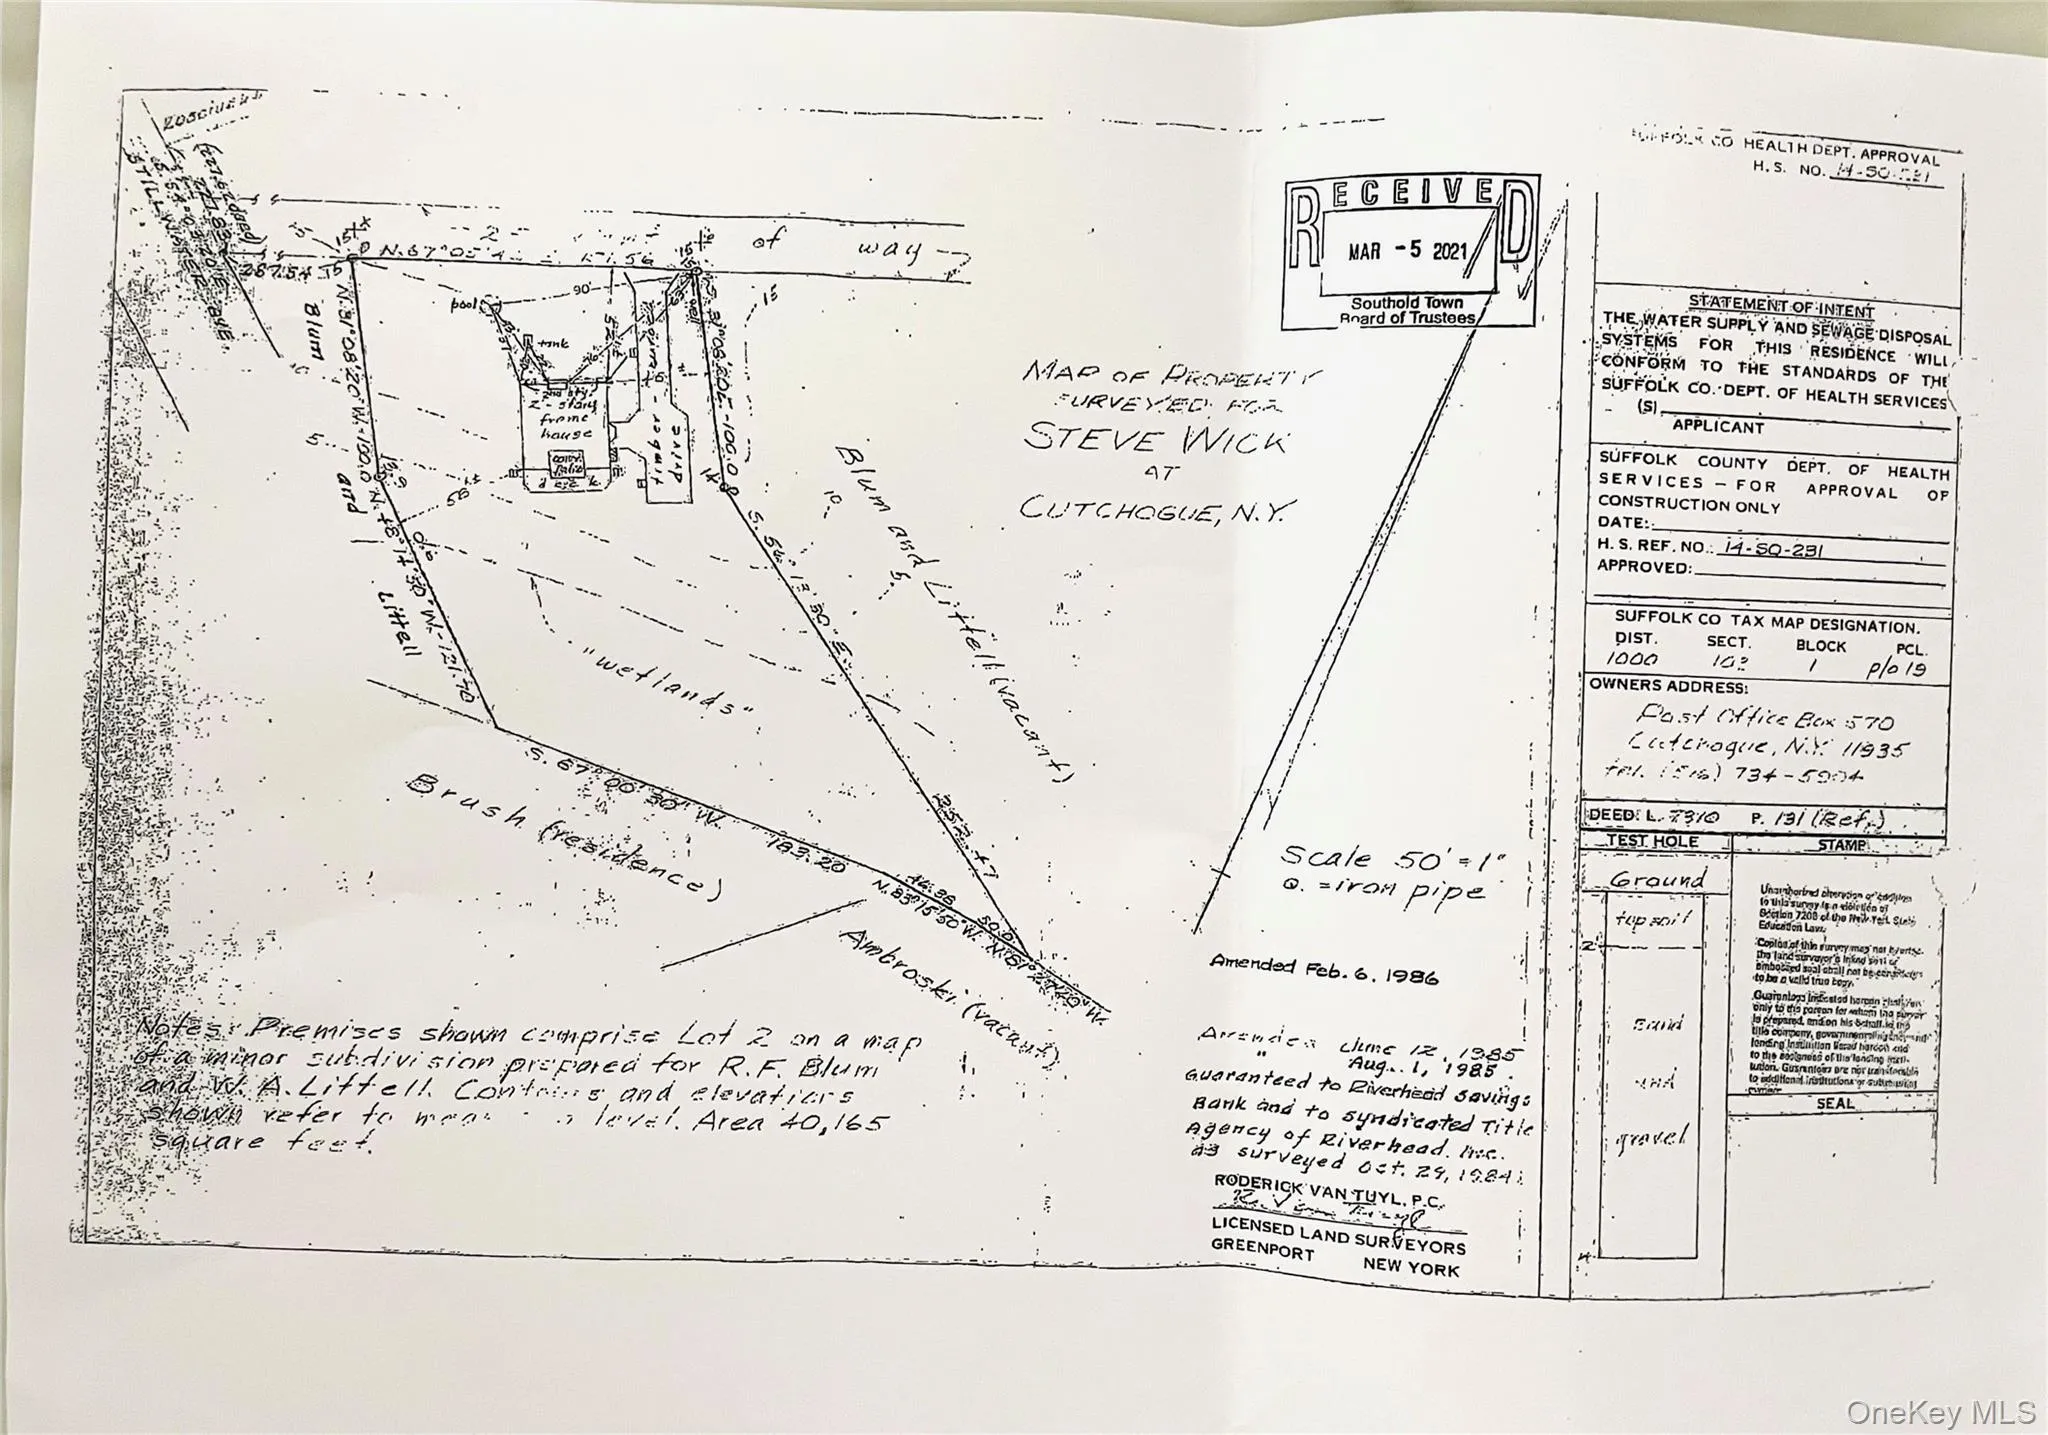 SUFFOLK CO HEALTH DEPT. APPROVAL
H. S. NO. 14-SO-231
RECEIVED
MAR - 5 2021
Southold Town
Board of Trustees
of way
N. 67° 05' 4
287.54
90'
pool
tank
2-story
frame
house
deck
timber
drive
N. 31° 08' 20" W. - 100.0
S. 31° 08' 20" E - 100.0
Blum
and
Littell
N. 48° 14' 50" W. - 121.70
S. 54° 13' 30" E.
257.47
Blum and Littell (vacant)
"wetlands"
S. 67° 00' 30" W.
183.20
Brush (residence)
46.38
N. 83° 15' 50" W.
50.0
Ambroski (vacant)
MAP OF PROPERTY
SURVEYED FOR
STEVE WICK
AT
CUTCHOGUE, N.Y.
Scale 50' = 1"
O. = iron pipe
Amended Feb. 6, 1986
Amended June 12, 1985
" Aug. 1, 1985
Guaranteed to Riverhead Savings
Bank and to syndicated Title
Agency of Riverhead. Inc.
as surveyed Oct. 29, 1984
RODERICK VAN TUYL, P.C.
LICENSED LAND SURVEYORS
GREENPORT NEW YORK
Notes: Premises shown comprise Lot 2 on a map
of a minor subdivision prepared for R. F. Blum
and W. A. Littell. Contours and elevations
shown refer to mean level. Area 40,165
square feet.
STATEMENT OF INTENT
THE WATER SUPPLY AND SEWAGE DISPOSAL
SYSTEMS FOR THIS RESIDENCE WILL
CONFORM TO THE STANDARDS OF THE
SUFFOLK CO. DEPT. OF HEALTH SERVICES
(S)
APPLICANT
SUFFOLK COUNTY DEPT. OF HEALTH
SERVICES – FOR APPROVAL OF
CONSTRUCTION ONLY
DATE:
H. S. REF. NO.: 14-SO-231
APPROVED:
SUFFOLK CO TAX MAP DESIGNATION.
DIST. SECT. BLOCK PCL.
1000 102 1 p/o 19
OWNERS ADDRESS:
Post Office Box 570
Cutchogue, N.Y. 11935
tel. (516) 734-5904
DEED: L. 7310 P. 131 (Ref.)
TEST HOLE
STAMP
Ground
top soil
2'
sand
and
gravel
Unauthorized alteration or addition
to this survey is a violation of
Section 7209 of the New York State
Education Law.
Copies of this survey map not bearing
the land surveyor's inked seal or
embossed seal shall not be considered
to be a valid true copy.
Guarantees indicated hereon shall run
only to the person for whom the survey
is prepared, and on his behalf to the
title company, governmental agency and
lending institution listed hereon and
to the assignees of the lending insti-
tution. Guarantees are not transferable
to additional institutions or subsequent
owners
SEAL
OneKey MLS